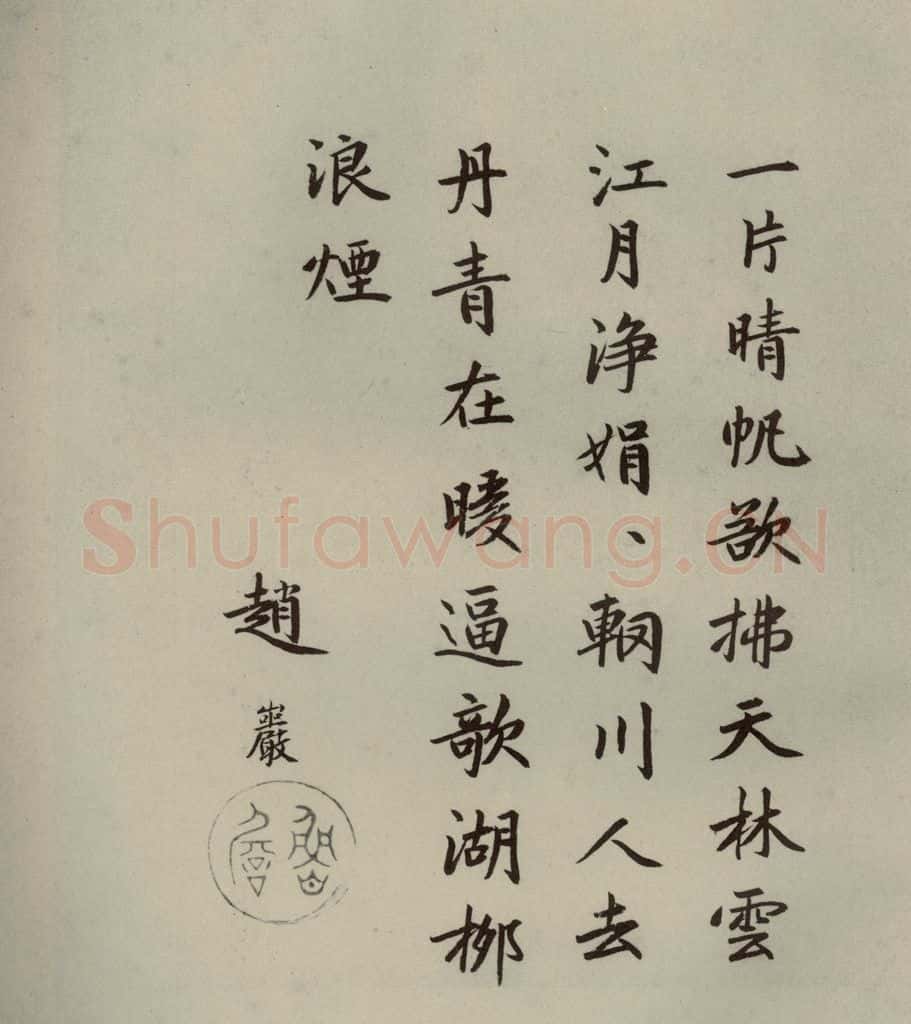 一片晴帆欲拂天林雲
江月淨娟、輞川人去
丹青在暖逼歌湖柳
浪煙
趙巖
Shufawang.CN